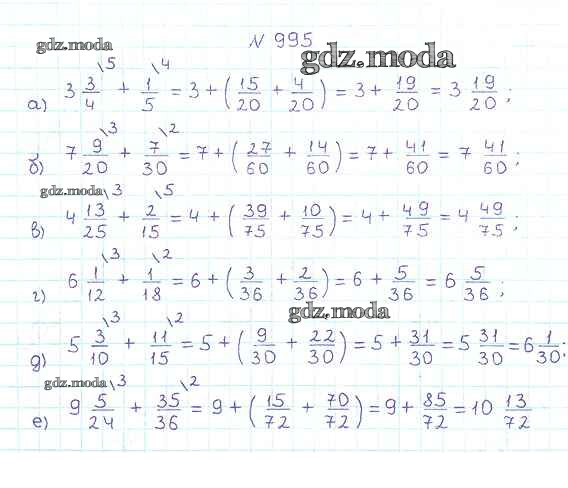 № 995
gdz.moda
gdz.moda
а) 3 3/4 \5 + 1/5 \4 = 3 + (15/20 + 4/20) = 3 + 19/20 = 3 19/20 ;
б) 7 9/20 \3 + 7/30 \2 = 7 + (27/60 + 14/60) = 7 + 41/60 = 7 41/60 ;
gdz.moda
в) 4 13/25 \3 + 2/15 \5 = 4 + (39/75 + 10/75) = 4 + 49/75 = 4 49/75 ;
г) 6 1/12 \3 + 1/18 \2 = 6 + (3/36 + 2/36) = 6 + 5/36 = 6 5/36 ;
gdz.moda
д) 5 3/10 \3 + 11/15 \2 = 5 + (9/30 + 22/30) = 5 + 31/30 = 5 31/30 = 6 1/30 ;
gdz.moda
е) 9 5/24 \3 + 35/36 \2 = 9 + (15/72 + 70/72) = 9 + 85/72 = 10 13/72